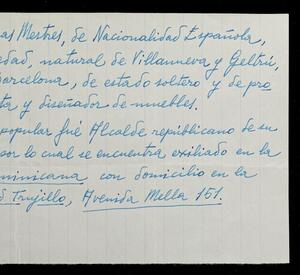 as Mestres, de Nacionalidad Española,
edad, natural de Villanueva y Geltrú,
Barcelona, de estado soltero y de pro
ta y diseñador de muebles.
popular fué Alcalde republicano de su
por lo cual se encuentra exiliado en la
minicana con domicilio en la
d Trujillo, Avenida Mella 151.